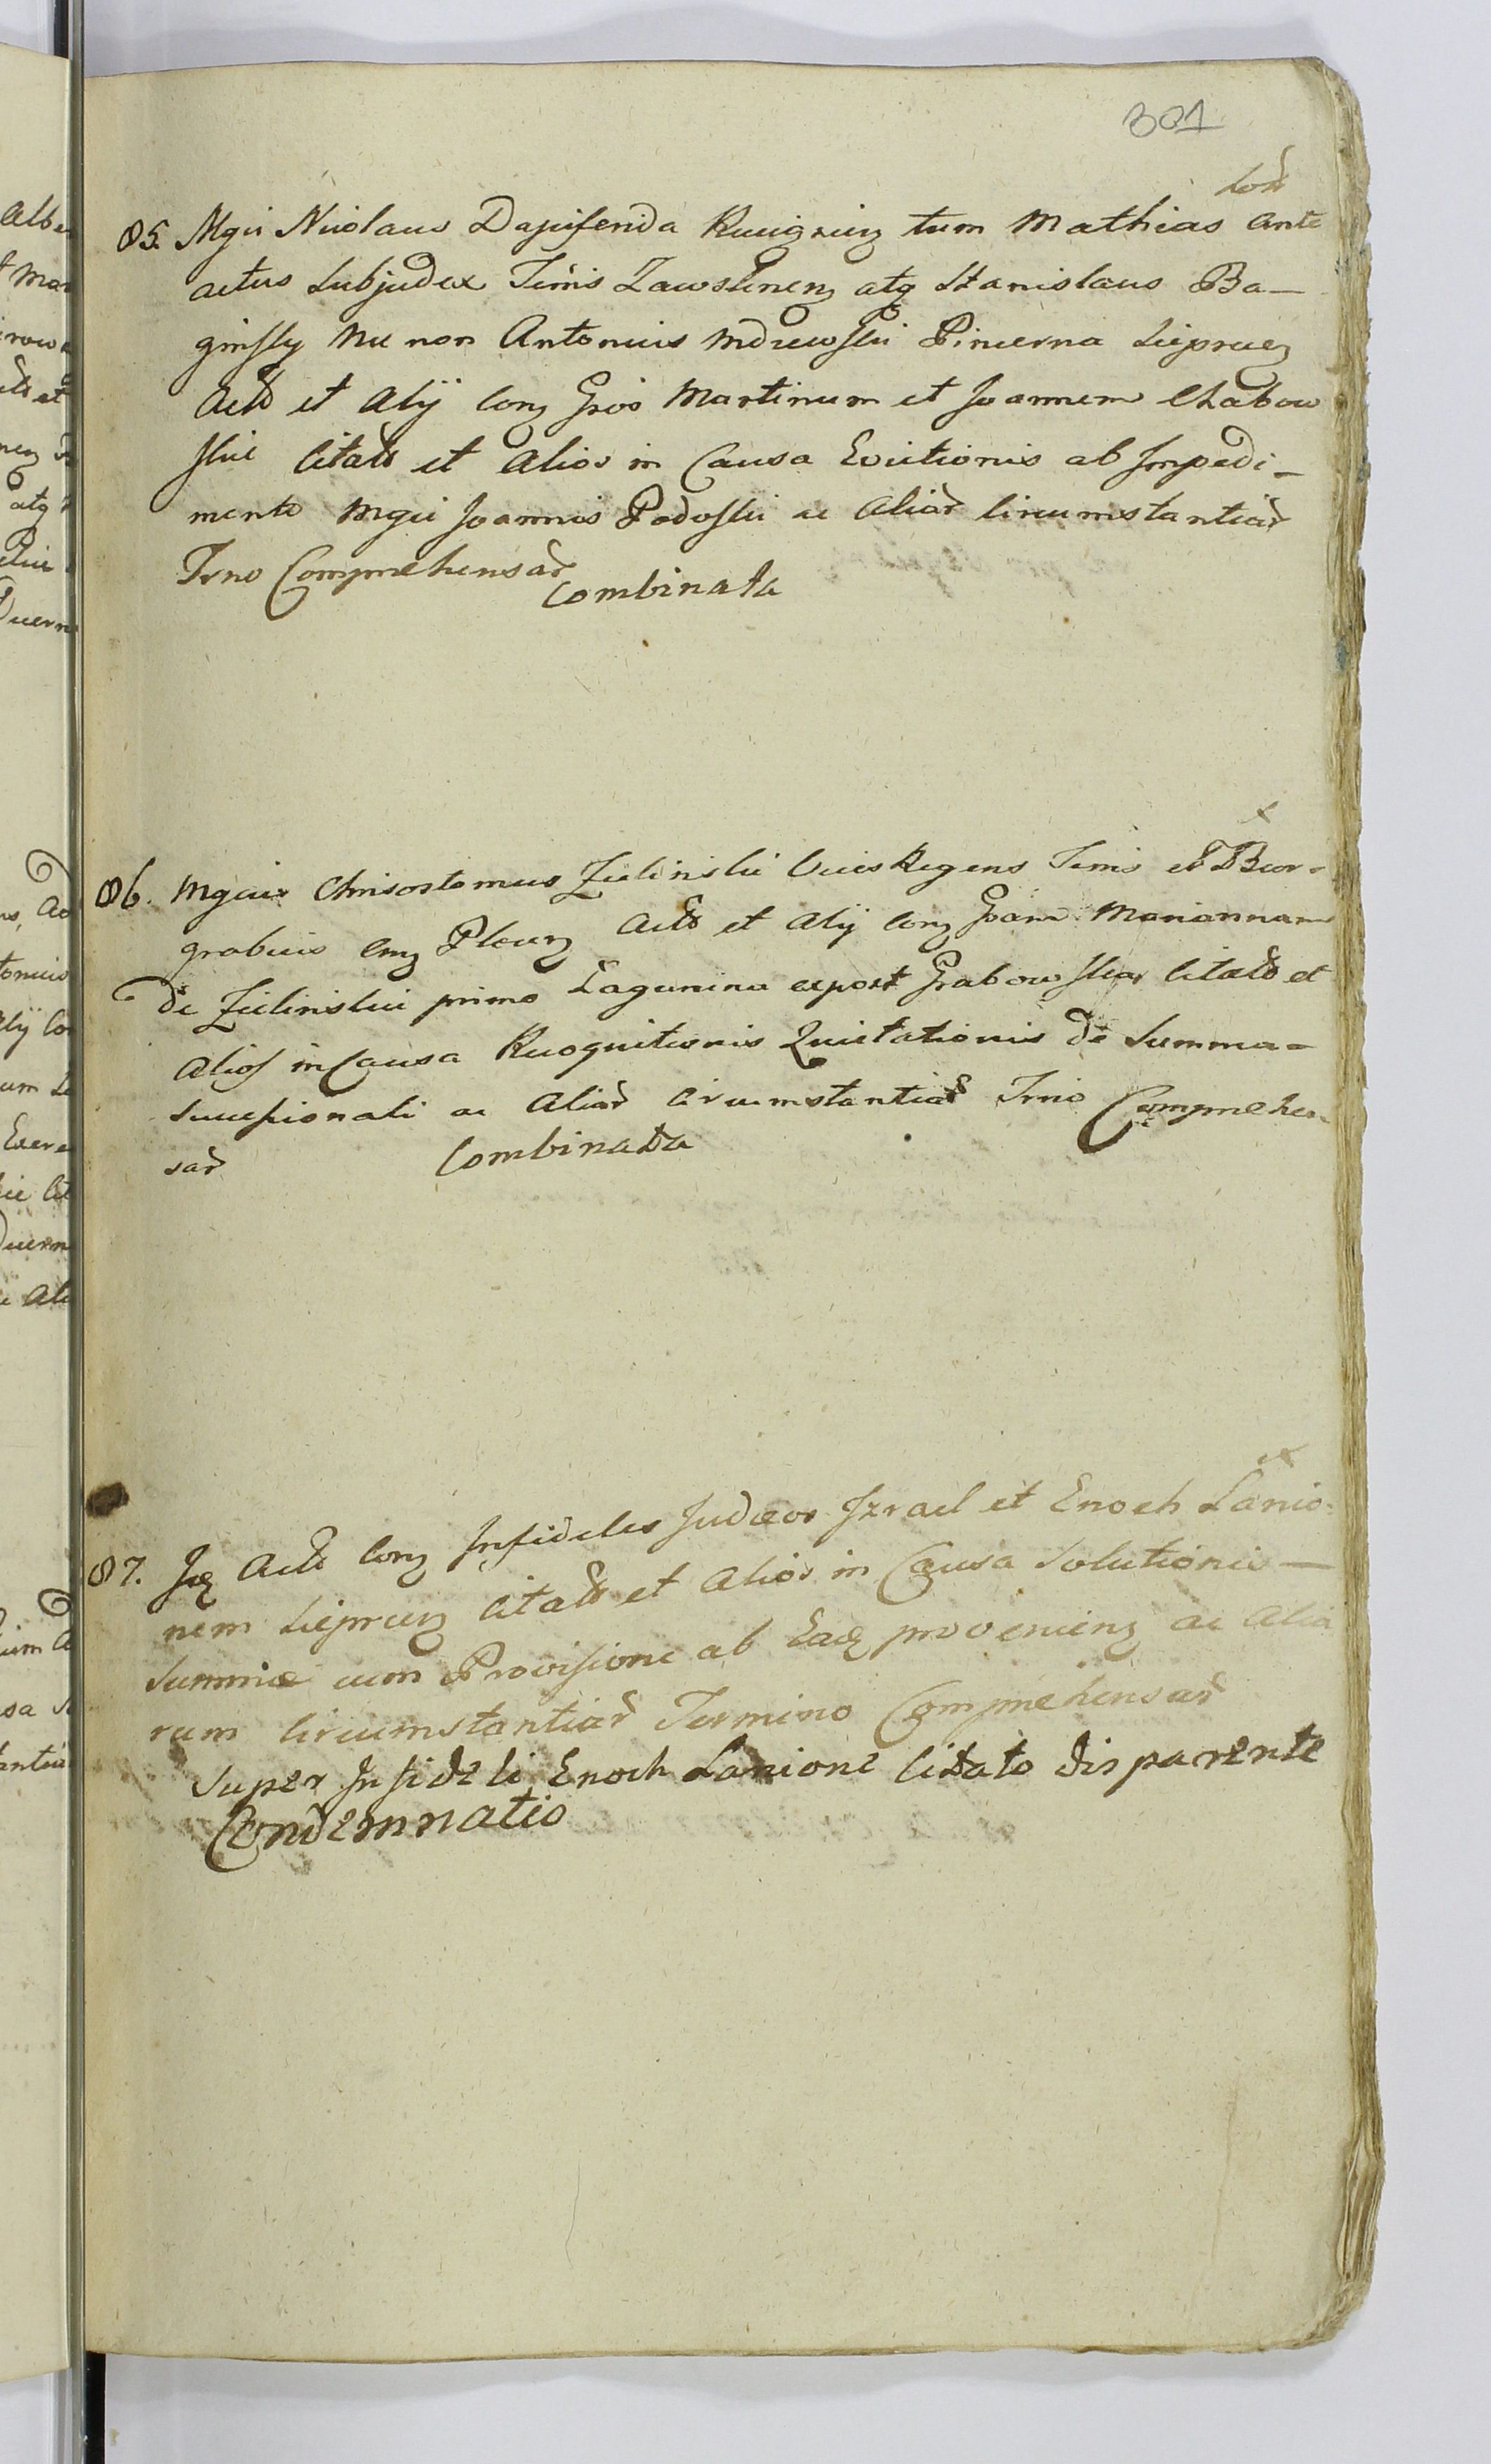 301
85. Mgci Nicolaus Dapiferida Rucignieng tum Mathias Ante
actus Subjudex Terris Zawskrneng atq Stanislaus Ba—
ginsky nec non Antonius Mdzewski Pincerna Sieprceng
Actts et Alij cong Gsos Martinum et Joannem Chabow
skie Citats et Alios in Causa Evictionis ab Impedi–
mento Mgci Joannis Podoski ac Aliar circumstantiar
Trno Comprehensar
Combinata
86. Mgcus Chrisostomus Zielinski Vices Regens Terris et Bur-
grabius Plceng Actts et Alij cong Gsam Mariannam
de Zielinskie primo Lagunina expost Grabowskar Citatts et
Alios in Causa Recognitionis Quietationis de Summa-
Successionali ac Aliar Circumstantiar Trno Comprehen-
sar
Combinata
87. Actts cong Infideles Judæos Izrael et Enoch Lanio-
nem Sieprceng Citatts et Alios in Causa Solutionis—
Summæ cum Provisione ab Eadq provenieng ac Alia
rum Circumstantiar Termino Comprehensar
Super Infideli Enoch Lanione Citato disparente
Condemnatio